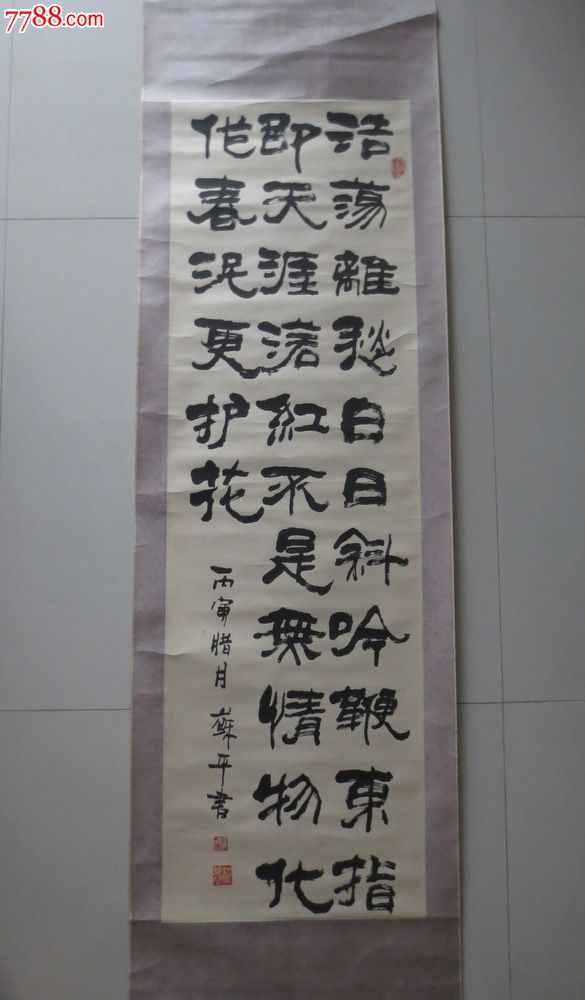 7788.com
浩蕩離愁白日斜吟鞭東指
即天涯落紅不是無情物化
作春泥更护花
丙寅腊月 蘇平書